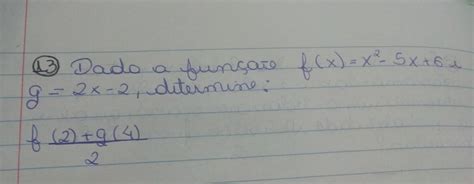 13 Dado a função f(x)=x²-5x+6 e
g = 2x-2, determine:
f (2)+g(4)
2